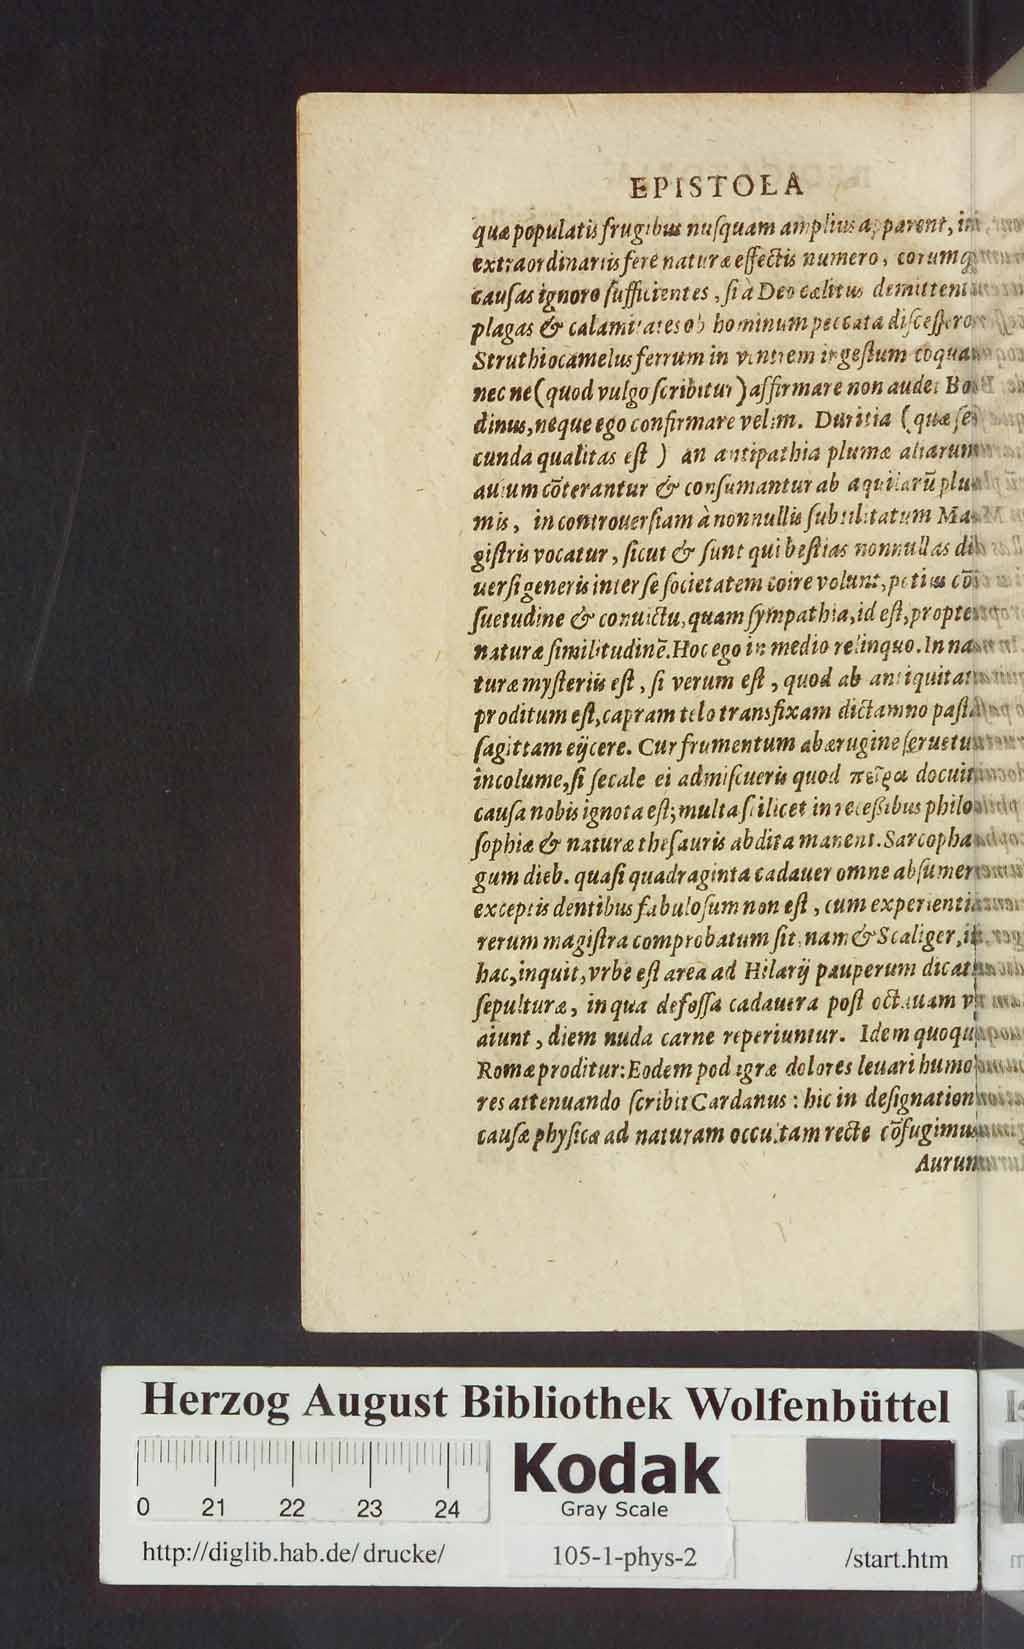 EPISTOLA
quæ populatis frugibus nuſquam ampliùs apparent, in
extraordinariis ferè naturæ effectis numero, eorumq́
cauſas ignoro ſufficientes, ſi à Deo cælitus
plagas & calamitates ob hominum peccata diſceſſero
Struthiocamelus ferrum in ventrem ingeſtum
nec ne (quod vulgo ſcribitur) affirmare non audet
dinus, neque ego confirmare velim. Duritia (quæ ſe
cunda qualitas eſt ) an antipathia plumæ aliarum
auium cõterantur & conſumantur ab aquilarũ plu
mis, in controuerſiam à nonnullis ſubtilitatum Ma
giſtris vocatur, ſicut & ſunt qui beſtias nonnullas di
uerſi generis inter ſe ſocietatem coire volunt, potius cõ
ſuetudine & conuictu, quam ſympathia, id eſt, propter
naturæ ſimilitudinẽ. Hoc ego in medio relinquo. In na
turæ myſteriis eſt, ſi verum eſt, quod ab
proditum eſt, capram telo transfixam dictamno
ſagittam eijcere. Cur frumentum ab ærugine
incolume, ſi ſecale ei admiſcueris quod πεῖρα docuit
cauſa nobis ignota eſt; multa ſcilicet in receßibus philo
ſophiæ & naturæ theſauris abdita manent. Sarcopha
gum dieb. quaſi quadraginta cadauer omne
exceptis dentibus fabuloſum non eſt, cum
rerum magiſtra comprobatum ſit, nam & Scaliger, in
hac, inquit, vrbe eſt area ad Hilarij pauperum
ſepulturæ, in qua defoſſa cadauera poſt octauam
aiunt, diem nuda carne reperiuntur. Idem
Romæ proditur: Eodem podagræ dolores leuari humo
res attenuando ſcribit Cardanus: hic in
cauſæ phyſicæ ad naturam occultam recte cõfugimus
Aurum
Herzog August Bibliothek Wolfenbüttel
0 21 22 23 24
Kodak
Gray Scale
http://diglib.hab.de/drucke/ 105-1-phys-2 /start.htm